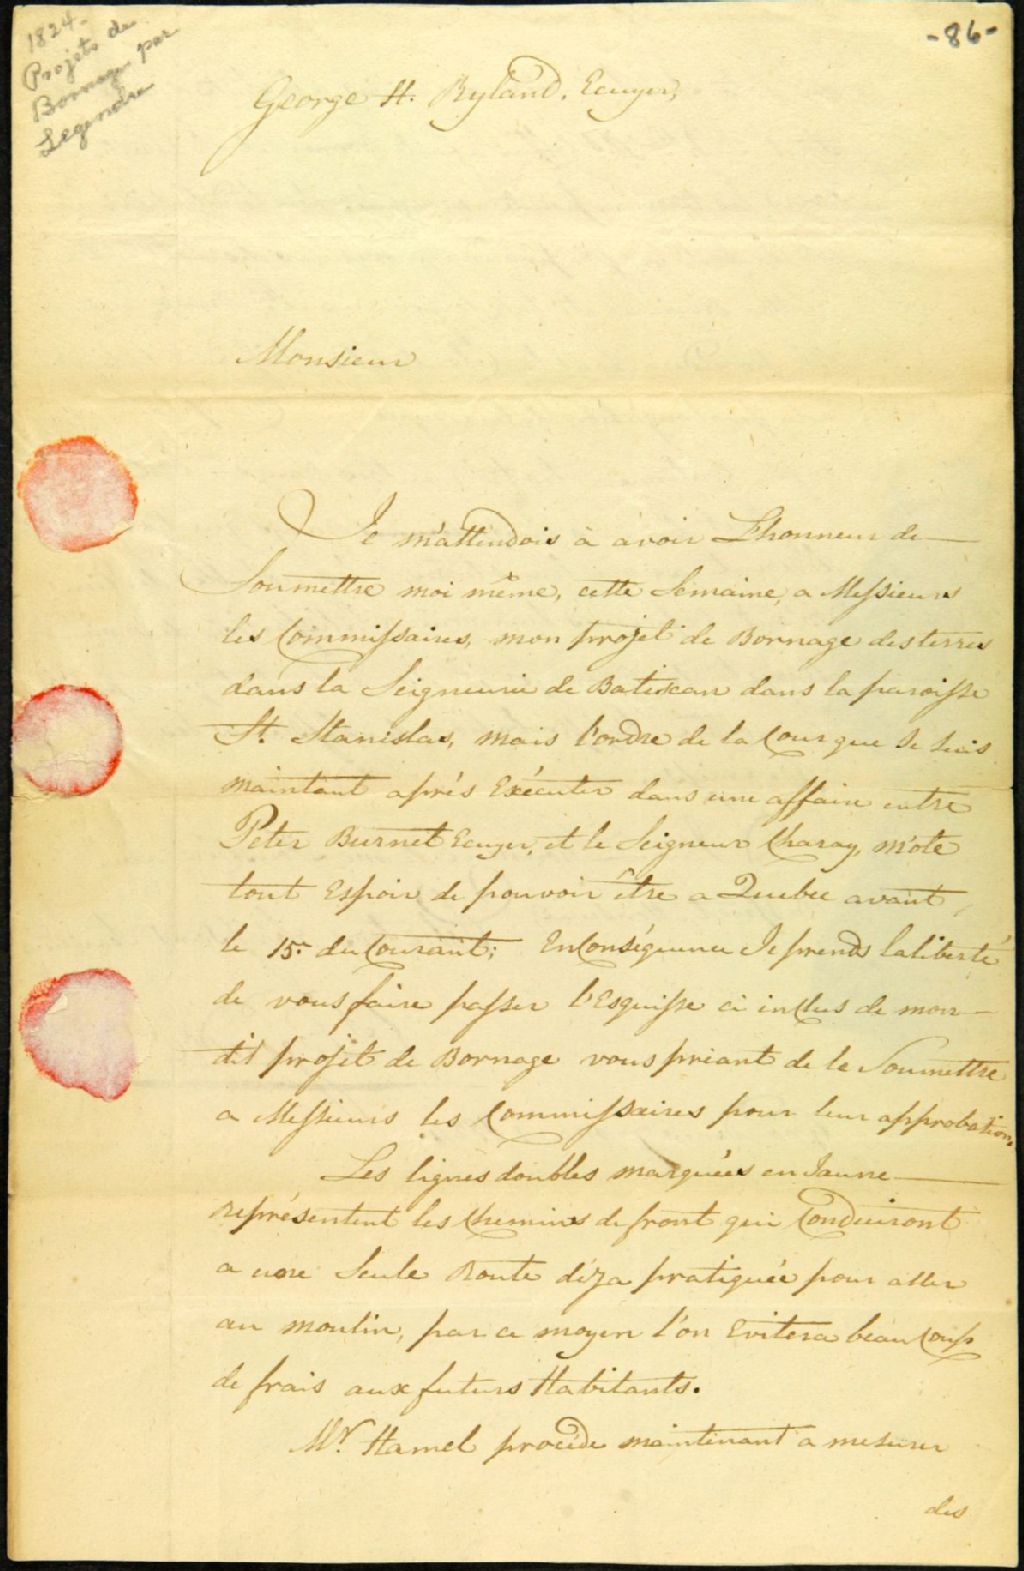 1824-
Projets de
Bornage par
Legendre
-86-
George H. Ryland. Ecuyer,
Monsieur
Je m'attendois à avoir L'honneur de
Soumettre moi même, cette Semaine, a Messieurs
les Commissaires, mon projet de Bornage des terres
dans la Seigneurie de Batiscan dans la paroisse
St. Stanislas, mais l'ordre de la Cour que Je suis
maintant aprés Exécuter dans une affaire entre
Peter Burnet Ecuyer, et le Seigneur Charay, m'ote
tout Espoir de pouvoir être a Quebec avant
le 15r du Courant; En Conséquence Je prends la liberté
de vous faire passer l'Esquisse ci inclus de mon
dit projet de Bornage vous priant de le Soumettre
a Messieurs les Commissaires pour leur approbation.
Les lignes doubles marquées en Jaune
représentent les Chemins de front qui Conduiront
a une Seule Route déza pratiquée pour aller
au moulin, par ce moyen l'on Evitera beau Coup
de frais aux futurs Habitants.
Mr. Hamel procéde maintenant a mesurer
des